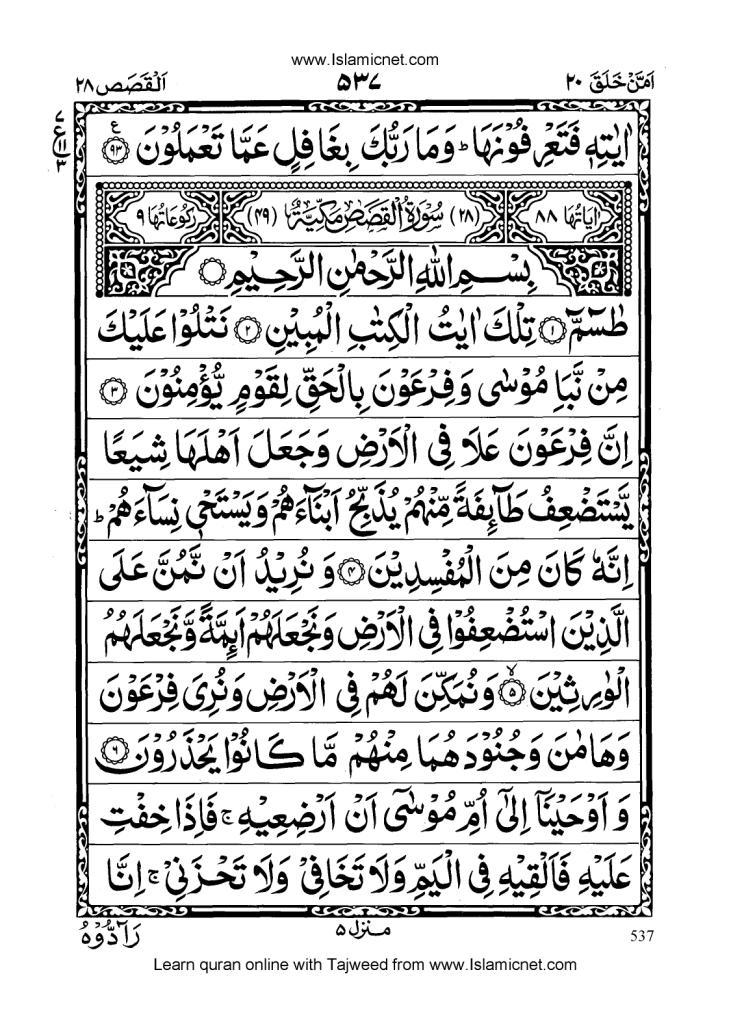 www.Islamicnet.com
اَمَّنۡ خَلَقَ ۲۰
۵۳۷
اَلۡقَصَص ۲۸
اٰیٰتِهٖ فَتَعۡرِفُوۡنَهَا ؕ وَمَا رَبُّكَ بِغَافِلٍ عَمَّا تَعۡمَلُوۡنَ ﴿۹۳﴾ ع
۷
ع ۱۱
۳
اٰیَاتُهَا ۸۸ (۲۸) سُوۡرَةُ الۡقَصَصِ مَكِّیَّةٌ (۴۹) رُكُوۡعَاتُهَا ۹
بِسۡمِ اللّٰهِ الرَّحۡمٰنِ الرَّحِیۡمِ
طٰسٓمّٓ ﴿۱﴾ تِلۡكَ اٰیٰتُ الۡكِتٰبِ الۡمُبِیۡنِ ﴿۲﴾ نَتۡلُوۡا عَلَیۡكَ
مِنۡ نَّبَاِ مُوۡسٰی وَفِرۡعَوۡنَ بِالۡحَقِّ لِقَوۡمٍ یُّؤۡمِنُوۡنَ ﴿۳﴾
اِنَّ فِرۡعَوۡنَ عَلَا فِی الۡاَرۡضِ وَجَعَلَ اَهۡلَهَا شِیَعًا
یَّسۡتَضۡعِفُ طَآئِفَةً مِّنۡهُمۡ یُذَبِّحُ اَبۡنَآءَهُمۡ وَیَسۡتَحۡیٖ نِسَآءَهُمۡ ؕ
اِنَّهٗ كَانَ مِنَ الۡمُفۡسِدِیۡنَ ﴿۴﴾ وَ نُرِیۡدُ اَنۡ نَّمُنَّ عَلَی
الَّذِیۡنَ اسۡتُضۡعِفُوۡا فِی الۡاَرۡضِ وَنَجۡعَلَهُمۡ اَئِمَّةً وَّنَجۡعَلَهُمُ
الۡوٰرِثِیۡنَ ۙ ﴿۵﴾ وَنُمَكِّنَ لَهُمۡ فِی الۡاَرۡضِ وَنُرِیَ فِرۡعَوۡنَ
وَهَامٰنَ وَجُنُوۡدَهُمَا مِنۡهُمۡ مَّا كَانُوۡا یَحۡذَرُوۡنَ ﴿۶﴾
وَ اَوۡحَیۡنَاۤ اِلٰۤی اُمِّ مُوۡسٰۤی اَنۡ اَرۡضِعِیۡهِ ۚ فَاِذَا خِفۡتِ
عَلَیۡهِ فَاَلۡقِیۡهِ فِی الۡیَمِّ وَلَا تَخَافِیۡ وَلَا تَحۡزَنِیۡ ۚ اِنَّا
رَآدُّوۡهُ
منزل ۵
537
Learn quran online with Tajweed from www.Islamicnet.com